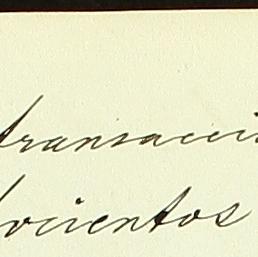 transacci
ocientos